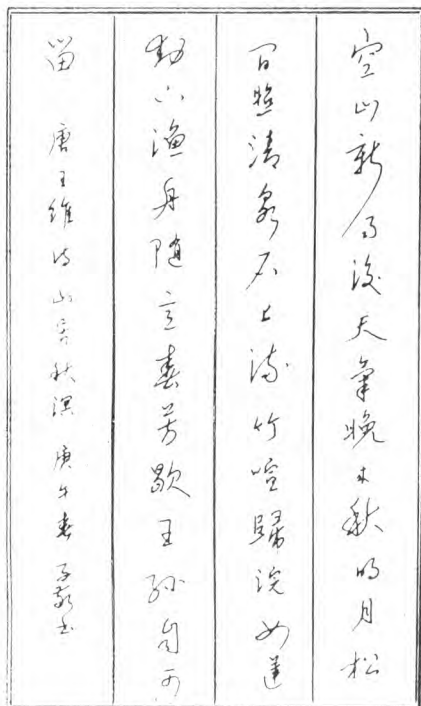 空山新雨後天氣晚來秋明月松
間照清泉石上流竹喧歸浣女蓮
動下漁舟隨意春芳歇王孫自可
留 唐王維詩山居秋暝 庚午春 子敬书